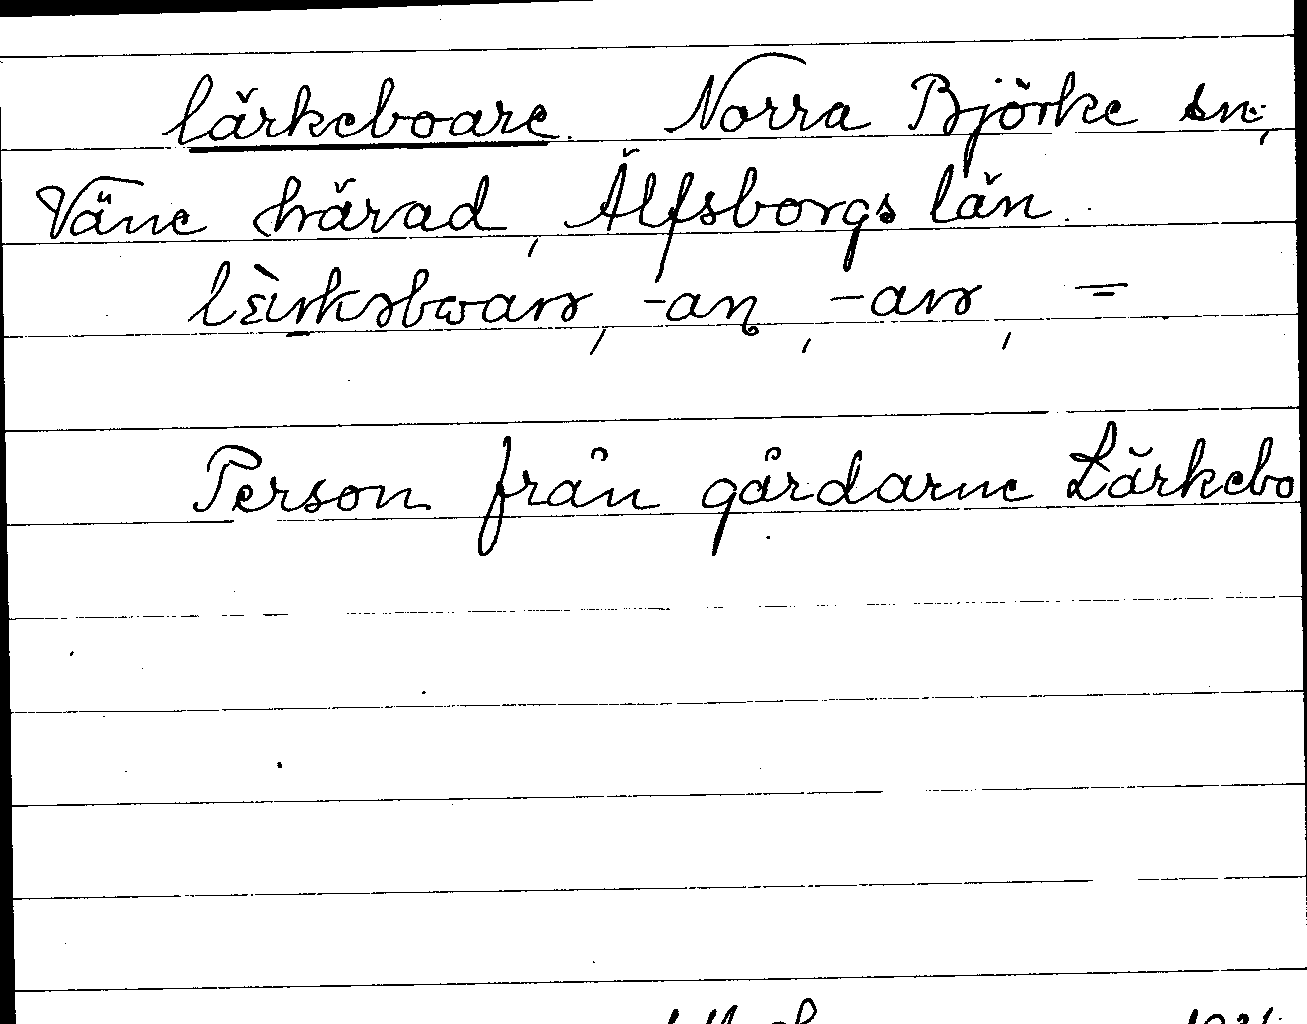 lärkeboare. Norra Björke sn.,
Väne härad, Älfsborgs län.
-an, -arə, =
Person från gårdarne Lärkebo